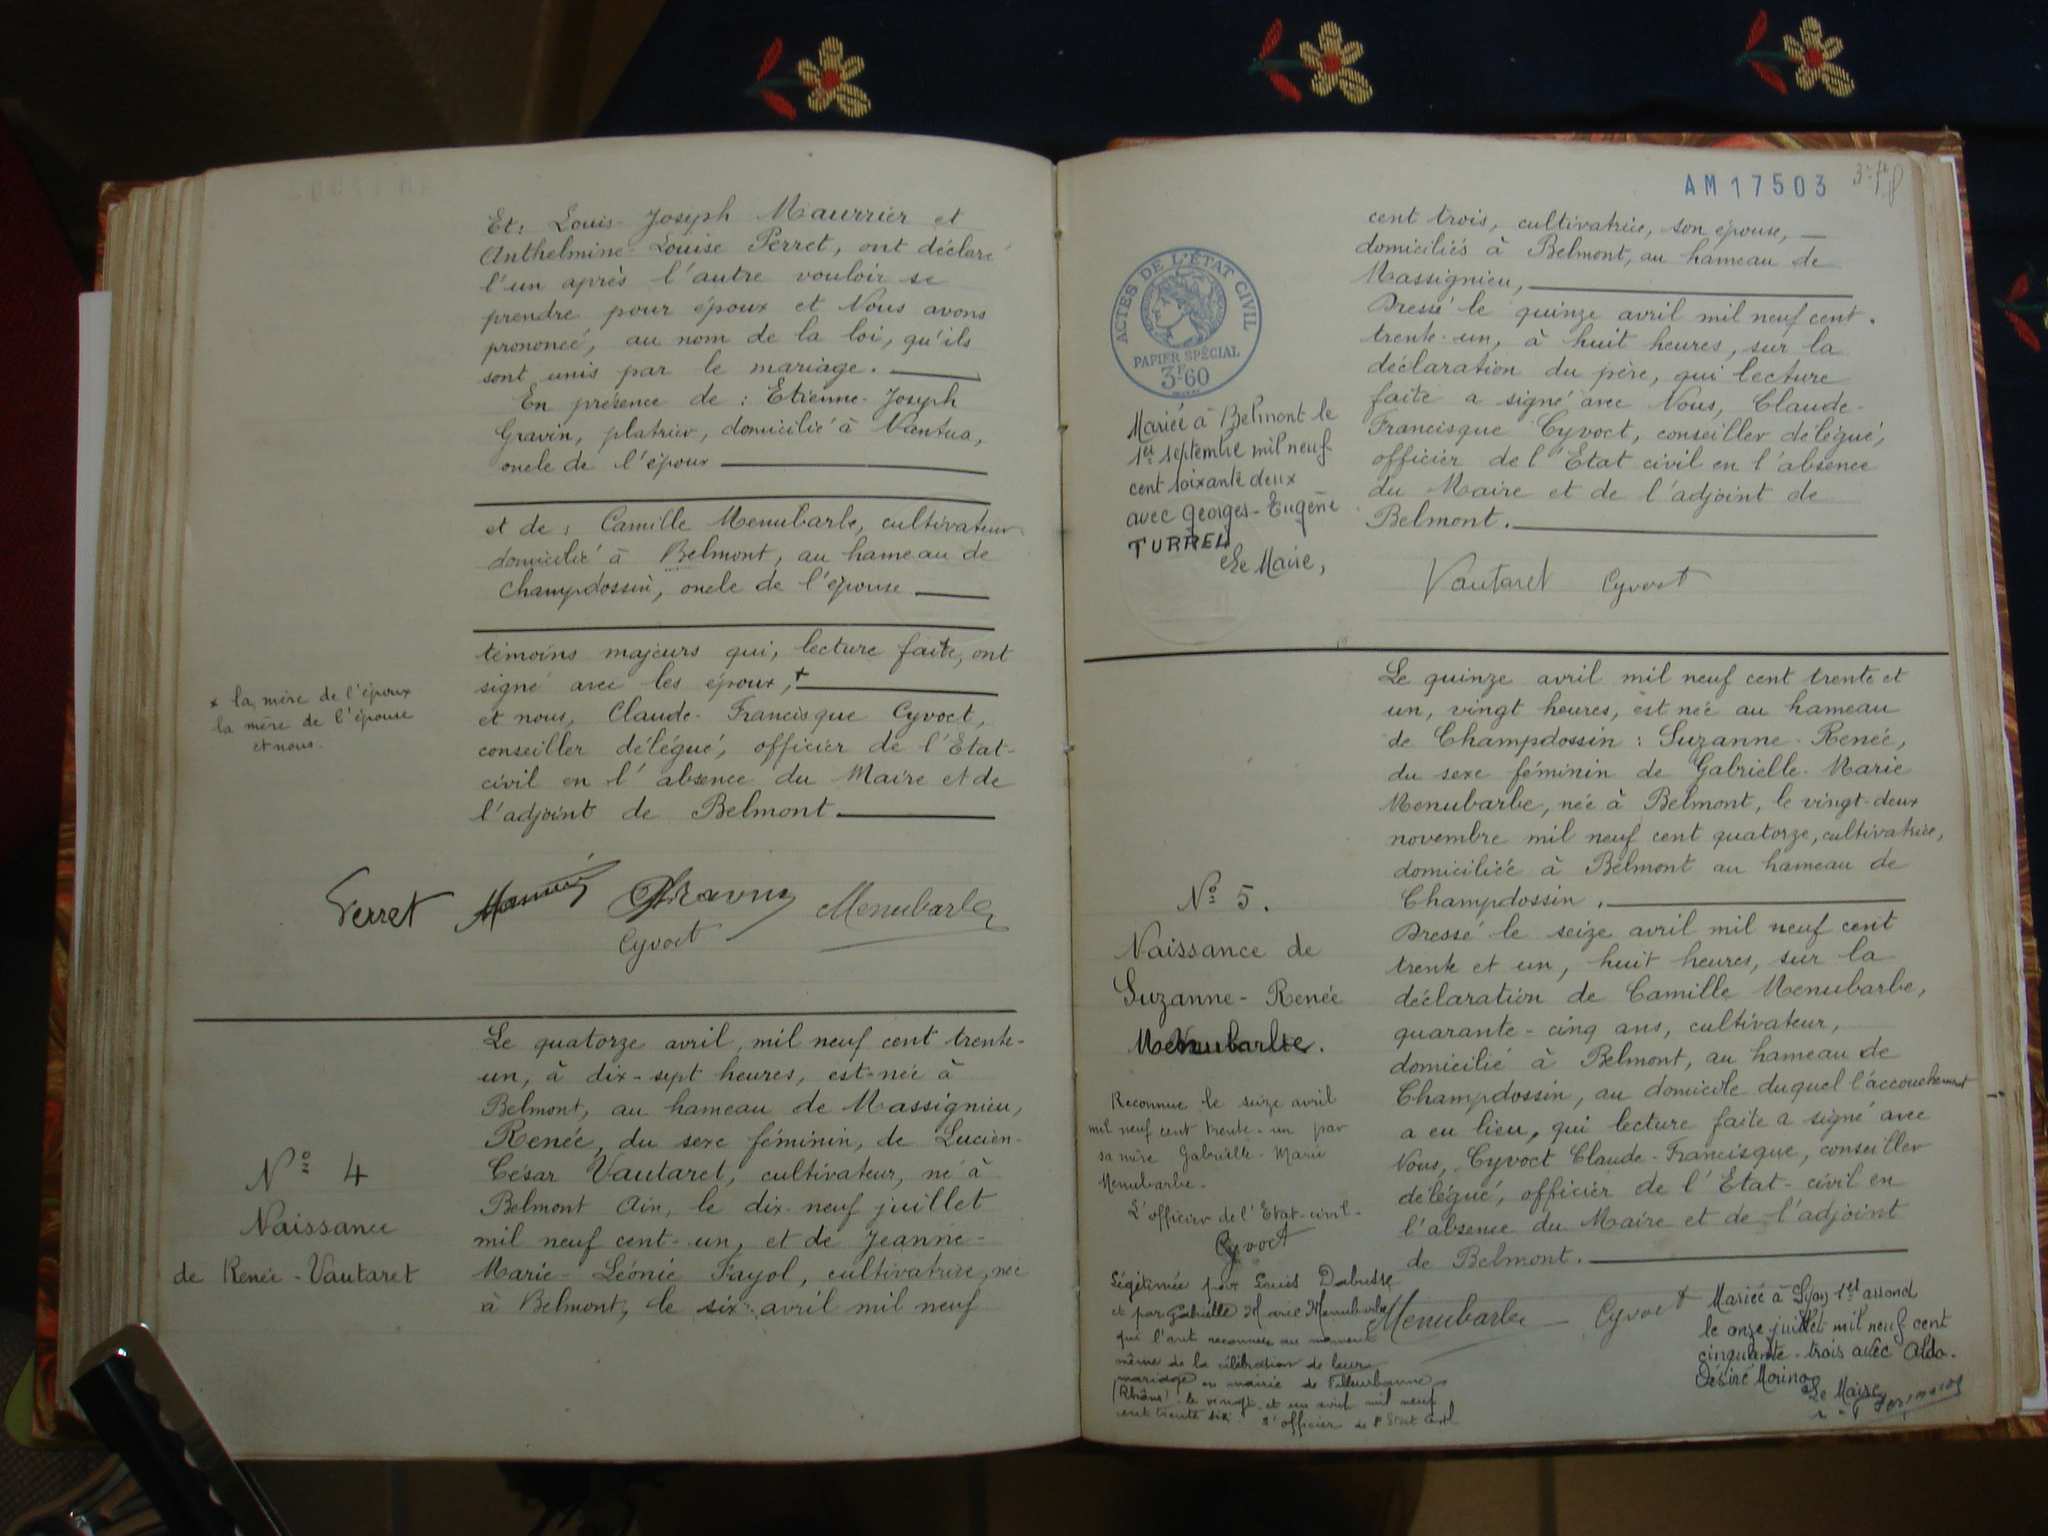 Et: Louis-Joseph Maurrier et
Anthelmine-Louise Perret, ont déclaré
l'un après l'autre vouloir se
prendre pour époux et Nous avons
prononcé, au nom de la loi, qu'ils
sont unis par le mariage.
En présence de : Etienne-Joseph
Gravin, platrier, domicilié à Nantua,
oncle de l'époux
et de : Camille Menubarbe, cultivateur
domicilié à Belmont, au hameau de
Champdossin, oncle de l'épouse
témoins majeurs qui, lecture faite, ont
signé avec les époux, +
et nous, Claude-Francisque Cyvoct,
conseiller délégué, officier de l'Etat-
civil en l'absence du Maire et de
l'adjoint de Belmont
x la mère de l'époux
la mère de l'épouse
et nous.
Perret
Menubarbe
Cyvoct
N° 4
Naissance
de Renée-Vautaret
Le quatorze avril, mil neuf cent trente-
un, à dix-sept heures, est née à
Belmont, au hameau de Massignieu,
Renée, du sexe féminin, de Lucien-
César Vautaret, cultivateur, né à
Belmont Ain, le dix-neuf juillet
mil neuf cent-un, et de Jeanne-
Marie-Léonie Fayol, cultivatrice, née
à Belmont, le six avril mil neuf
AM 17503
ACTES DE L'ÉTAT CIVIL
PAPIER SPÉCIAL
3F60
cent trois, cultivatrice, son épouse,
domiciliés à Belmont, au hameau de
Massignieu,
Dressé le quinze avril mil neuf cent
trente-un, à huit heures, sur la
déclaration du père, qui lecture
faite a signé avec Nous, Claude-
Francisque Cyvoct, conseiller délégué,
officier de l'Etat civil en l'absence
du Maire et de l'adjoint de
Belmont.
Vautaret Cyvoct
Mariée à Belmont le
1er septembre mil neuf
cent soixante deux
avec Georges-Eugène
TURREL
Le Maire,
N° 5.
Naissance de
Suzanne-Renée
Menubarbe.
Le quinze avril mil neuf cent trente et
un, vingt heures, est née au hameau
de Champdossin : Suzanne-Renée,
du sexe féminin de Gabrielle-Marie
Menubarbe, née à Belmont, le vingt-deux
novembre mil neuf cent quatorze, cultivatrice,
domiciliée à Belmont au hameau de
Champdossin.
Dressé le seize avril mil neuf cent
trente et un, huit heures, sur la
déclaration de Camille Menubarbe,
quarante-cinq ans, cultivateur,
domicilié à Belmont, au hameau de
Champdossin, au domicile duquel l'accouchement
a eu lieu, qui lecture faite a signé avec
Nous, Cyvoct Claude-Francisque, conseiller
délégué, officier de l'Etat-civil en
l'absence du Maire et de l'adjoint
de Belmont.
Menubarbe Cyvoct
Reconnue le seize avril
mil neuf cent trente-un par
sa mère Gabrielle-Marie
Menubarbe.
L'officier de l'Etat-civil-
Cyvoct
Légitimée par Louis
et par Gabrielle Marie Menubarbe
qui l'ont reconnue au moment
même de la célébration de leur
mariage en mairie de Villeurbanne
(Rhône) le vingt et un avril mil neuf
cent trente six L'officier de l'Etat civil
Mariée à Lyon 1er arrond
le onze juillet mil neuf cent
cinquante-trois avec Aldo-
Désiré Morino
Le Maire